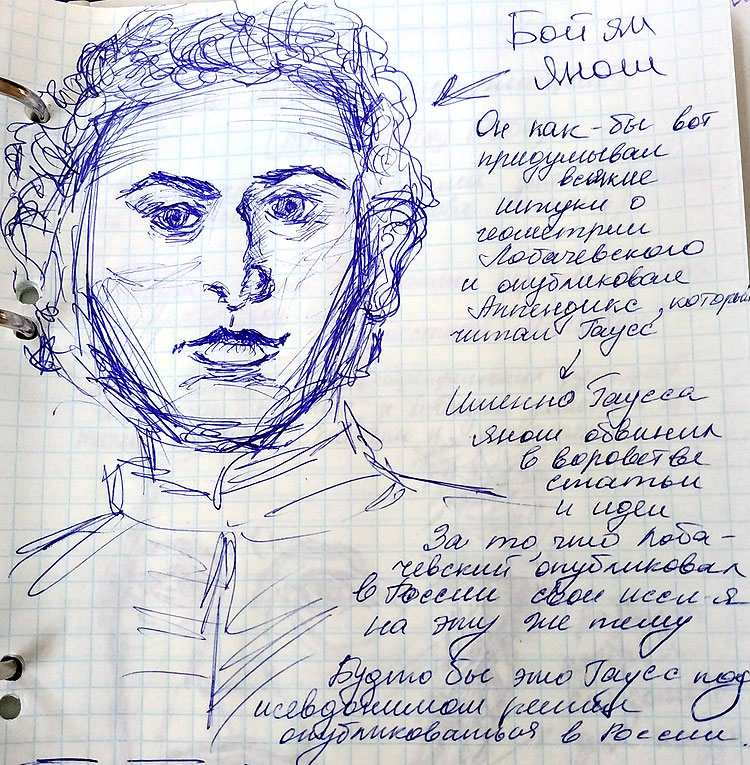 Бойяи
Янош
Он как-бы вот
придумывал
всякие
штуки о
геометрии
Лобачевского
и опубликовал
Аппендикс, который
читал Гаусс
Именно Гаусса
Янош обвинил
в воровстве
статьи
и идеи
За то, что Лоба-
чевский опубликовал
в России свои иссл-я
на эту же тему
Будто бы это Гаусс под
псевдонимом решил
опубликоваться в России.